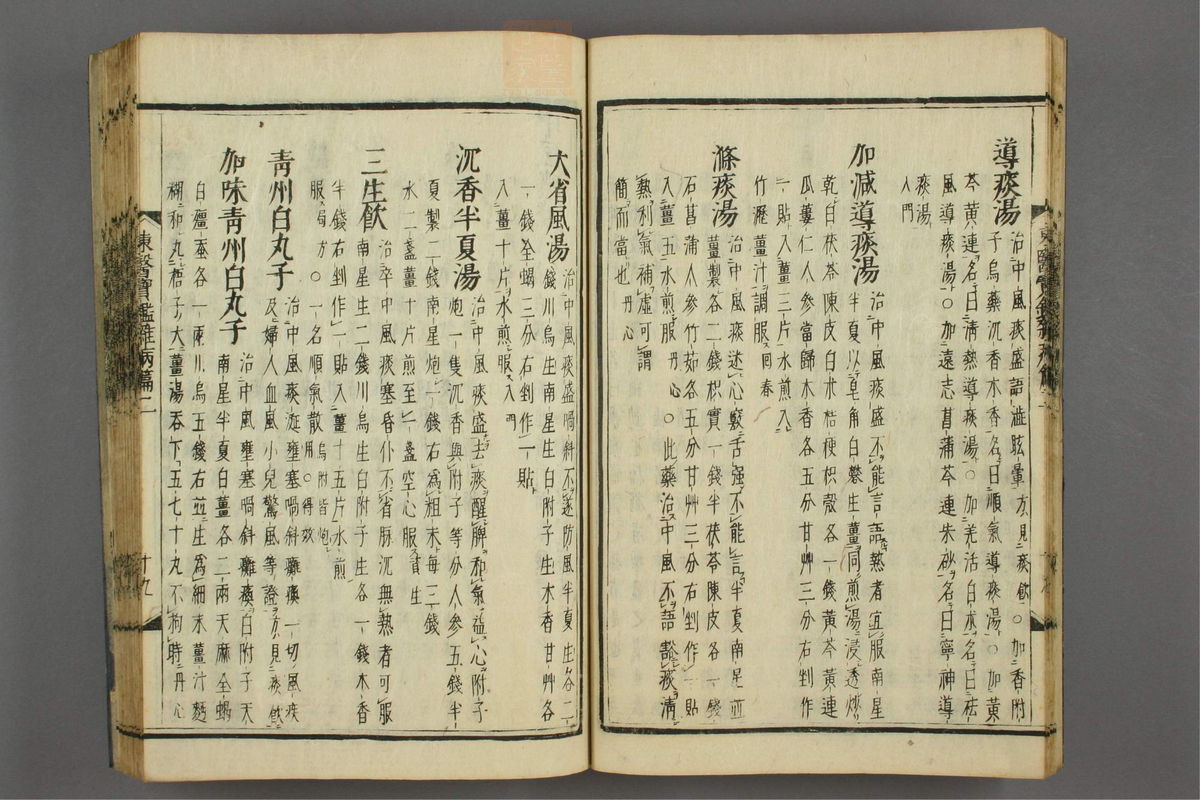 導痰湯 治中風痰盛語澁眩暈方見痰飲○加香附
子烏藥沉香木香名曰順氣導痰湯○加黃
芩黃連名曰清熱導痰湯○加羌活白朮名曰祛
風導痰湯○加遠志菖蒲芩連朱砂名曰寧神導
痰湯
入門
加減導痰湯 治中風痰盛不能言語熱者宜服南星
半夏以皂角白礬生薑同煎湯浸透炒
乾白茯苓陳皮白朮桔梗枳殼各一錢黃芩黃連
瓜蔞仁人參當歸木香各五分甘艸三分右剉作
一貼入薑三片水煎入
竹瀝薑汁調服回春
滌痰湯 治中風痰迷心竅舌强不能言半夏南星並
薑製各二錢枳實一錢半茯苓陳皮各一錢
石菖蒲人參竹茹各五分甘艸三分右剉作一貼
入薑五水煎服丹心○此藥治中風不語豁痰淸
熱利氣補虛可謂
簡而當也丹心
大省風湯 治中風痰盛喎斜不遂防風半夏生各二
錢川烏生南星生白附子生木香甘艸各
一錢全蝎三分右剉作一貼
入薑十片水煎服入門
沉香半夏湯 治中風痰盛去痰醒脾和氣益心附子
炮一隻沉香與附子等分人參五錢半
夏製二錢南星炮一錢右爲粗末每三錢
水二盞薑十片煎至一盞空心服資生
三生飮 治卒中風痰塞昏仆不省脉沉無熱者可服
南星生二錢川烏生白附子生各一錢木香
半錢右剉作一貼入薑十五片水煎
服局方○一名順氣散烏附皆炮用○得效
靑州白丸子 治中風痰涎壅塞喎斜癱瘓一切風痰
及婦人血風小兒驚風等證方見痰飮
加味靑州白丸子 治中風壅塞喎斜癱瘓白附子天
南星半夏白薑各二兩天麻全蝎
白殭蚕各一兩川烏五錢右並生爲細末薑汁麪
糊和丸梧子大薑湯呑下五七十丸不拘時丹心
東醫寶鑑雜病篇二
十九